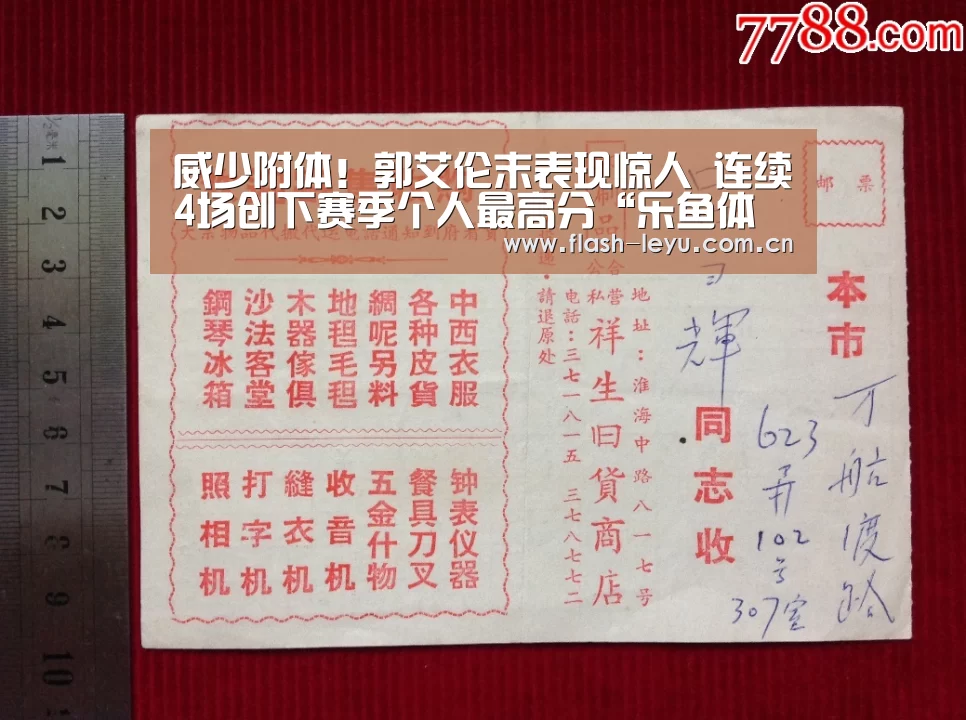 7788.com
威少附体！郭艾伦末表现惊人 连续
4场创下赛季个人最高分“乐鱼体
www.flash-leyu.com.cn
邮票
本市
万航渡路
623弄102号307室
輝
同志收
地址：淮海中路八一七号
公私合营
祥生旧貨商店
电話：三七一八一五 三七八七七二
請退原处
中西衣服
各种皮貨
綢呢另料
地毯毛毯
木器傢俱
沙法客堂
鋼琴冰箱
钟表仪器
餐具刀叉
五金什物
收音机
縫衣机
打字机
照相机
1
2
3
4
5
6
7
8
9
10